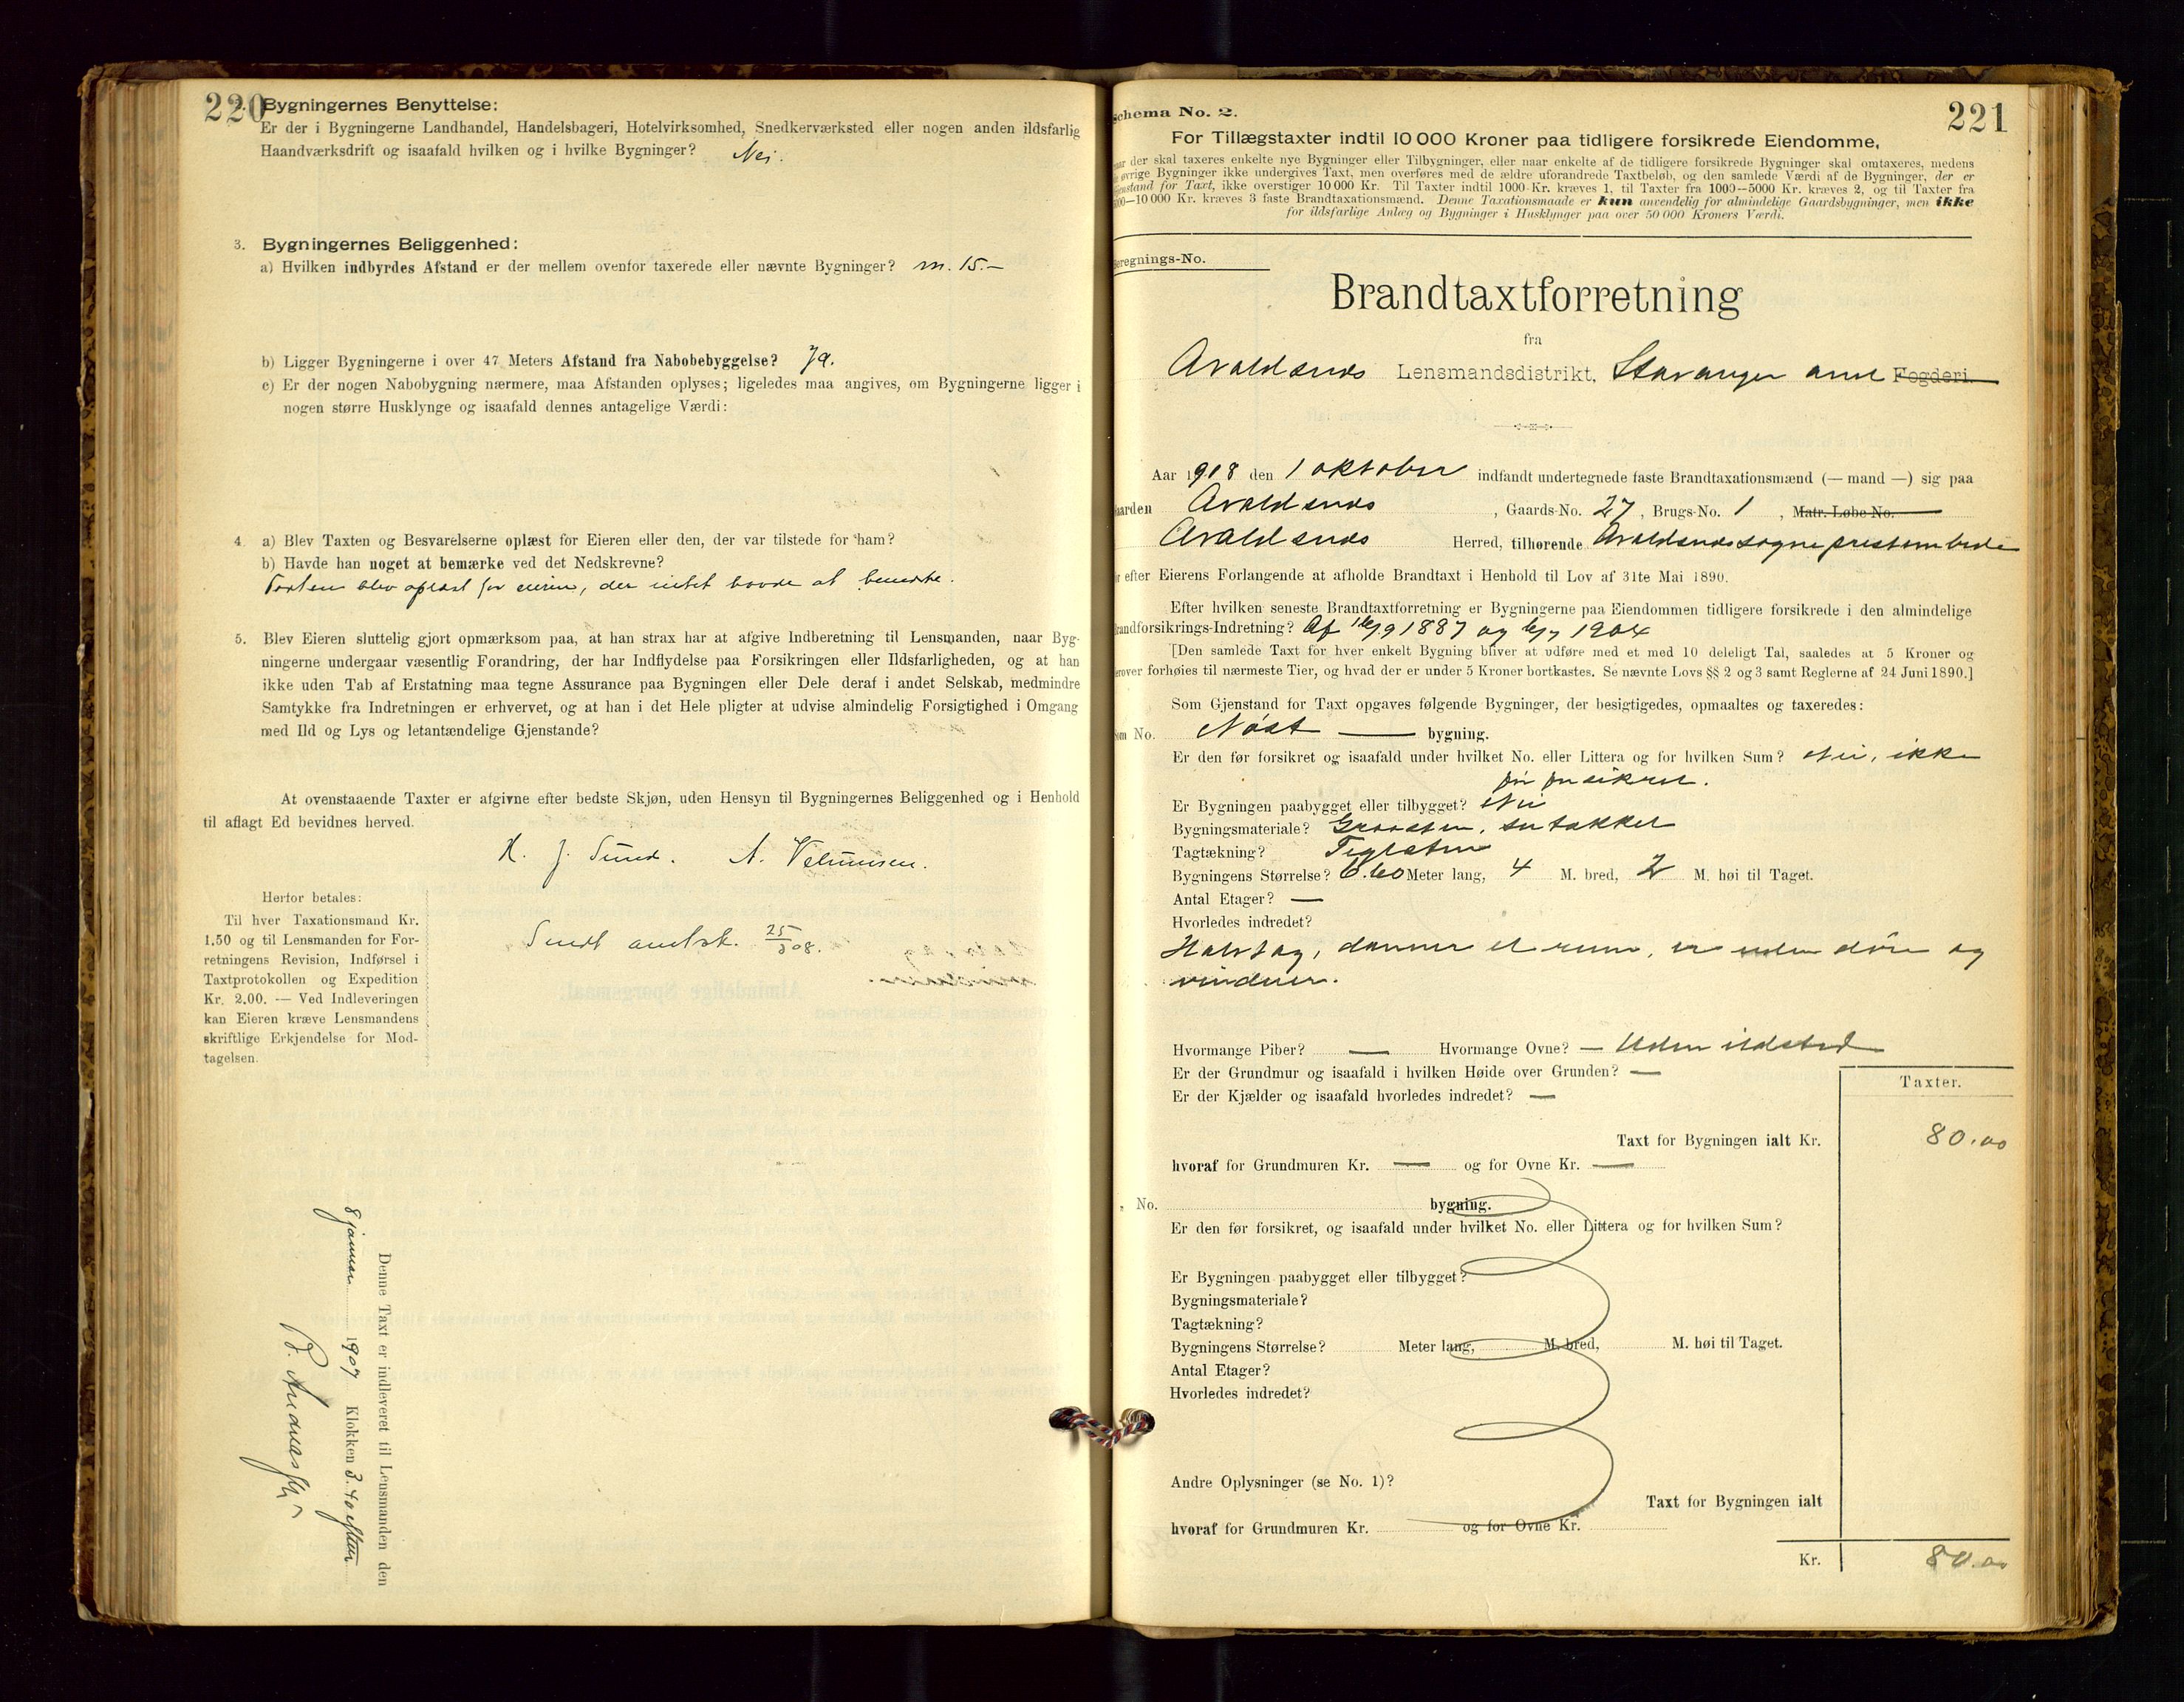 220
2. Bygningernes Benyttelse:
Er der i Bygningerne Landhandel, Handelsbageri, Hotelvirksomhed, Snedkerværksted eller nogen anden ildsfarlig
Haandværksdrift og isaafald hvilken og i hvilke Bygninger? Nei.
3. Bygningernes Beliggenhed:
a) Hvilken indbyrdes Afstand er der mellem ovenfor taxerede eller nævnte Bygninger? m. 15.–
b) Ligger Bygningerne i over 47 Meters Afstand fra Nabobebyggelse? Ja.
c) Er der nogen Nabobygning nærmere, maa Afstanden oplyses; ligeledes maa angives, om Bygningerne ligger i
nogen større Husklynge og isaafald dennes antagelige Værdi:
4. a) Blev Taxten og Besvarelserne oplæst for Eieren eller den, der var tilstede for ham?
b) Havde han noget at bemærke ved det Nedskrevne?
Taxten blev oplæst for eieren, der intet havde at bemerke.
5. Blev Eieren sluttelig gjort opmærksom paa, at han strax har at afgive Indberetning til Lensmanden, naar Byg-
ningerne undergaar væsentlig Forandring, der har Indflydelse paa Forsikringen eller Ildsfarligheden, og at han
ikke uden Tab af Erstatning maa tegne Assurance paa Bygningen eller Dele deraf i andet Selskab, medmindre
Samtykke fra Indretningen er erhvervet, og at han i det Hele pligter at udvise almindelig Forsigtighed i Omgang
med Ild og Lys og letantændelige Gjenstande?
At ovenstaaende Taxter er afgivne efter bedste Skjøn, uden Hensyn til Bygningernes Beliggenhed og i Henhold
til aflagt Ed bevidnes herved.
K. J. Sund. A. Velunnsen.
Sendt amtsk. 25/3 08.
Herfor betales:
Til hver Taxationsmand Kr.
1.50 og til Lensmanden for For-
retningens Revision, Indførsel i
Taxtprotokollen og Expedition
Kr. 2.00. — Ved Indleveringen
kan Eieren kræve Lensmandens
skriftlige Erkjendelse for Mod-
tagelsen.
Denne Taxt er indleveret til Lensmanden den
8 januar 1907 Klokken 3.40 efter
B.
221
Schema No. 2.
For Tillægstaxter indtil 10 000 Kroner paa tidligere forsikrede Eiendomme,
naar der skal taxeres enkelte nye Bygninger eller Tilbygninger, eller naar enkelte af de tidligere forsikrede Bygninger skal omtaxeres, medens
øvrige Bygninger ikke undergives Taxt, men overføres med de ældre uforandrede Taxtbeløb, og den samlede Værdi af de Bygninger, der er
Gjenstand for Taxt, ikke overstiger 10 000 Kr. Til Taxter indtil 1000 Kr. kræves 1, til Taxter fra 1000—5000 Kr. kræves 2, og til Taxter fra
5000—10 000 Kr. kræves 3 faste Brandtaxationsmænd. Denne Taxationsmaade er kun anvendelig for almindelige Gaardsbygninger, men ikke
for ildsfarlige Anlæg og Bygninger i Husklynger paa over 50 000 Kroners Værdi.
Beregnings-No.
Brandtaxtforretning
fra
Avaldsnes Lensmandsdistrikt, Stavanger amt Fogderi.
Aar 1908 den 1 oktober indfandt undertegnede faste Brandtaxationsmænd (— mand —) sig paa
Gaarden Avaldsnes, Gaards-No. 27, Brugs-No. 1, Matr. Løbe-No.
Avaldsnes Herred, tilhørende Avaldsnes sogneprestembede
for efter Eierens Forlangende at afholde Brandtaxt i Henhold til Lov af 31te Mai 1890.
Efter hvilken seneste Brandtaxtforretning er Bygningerne paa Eiendommen tidligere forsikrede i den almindelige
Brandforsikrings-Indretning? Af 16/9 1887 og 6/7 1904
[Den samlede Taxt for hver enkelt Bygning bliver at udføre med et med 10 deleligt Tal, saaledes at 5 Kroner og
derover forhøies til nærmeste Tier, og hvad der er under 5 Kroner bortkastes. Se nævnte Lovs §§ 2 og 3 samt Reglerne af 24 Juni 1890.]
Som Gjenstand for Taxt opgaves følgende Bygninger, der besigtigedes, opmaaltes og taxeredes:
Som No. Nøst — bygning.
Er den før forsikret og isaafald under hvilket No. eller Littera og for hvilken Sum? Nei, ikke
før forsikret.
Er Bygningen paabygget eller tilbygget? Nei
Bygningsmateriale? Graasten,
Tagtækning? Teglsten
Bygningens Størrelse? 6.60 Meter lang, 4 M. bred, 2 M. høi til Taget.
Antal Etager? —
Hvorledes indredet?
Halvtag, danner et rum, er uden døre og
vinduer.
Hvormange Piber? — Hvormange Ovne? — Uden ildsted
Er der Grundmur og isaafald i hvilken Høide over Grunden? —
Er der Kjælder og isaafald hvorledes indredet? —
Taxter.
Taxt for Bygningen ialt Kr. 80.00
hvoraf for Grundmuren Kr. — og for Ovne Kr. —
" No. bygning.
Er den før forsikret, og isaafald under hvilket No. eller Littera og for hvilken Sum?
Er Bygningen paabygget eller tilbygget?
Bygningsmateriale?
Tagtækning?
Bygningens Størrelse? Meter lang, M. bred, M. høi til Taget.
Antal Etager?
Hvorledes indredet?
Andre Oplysninger (se No. 1)?
Taxt for Bygningen ialt
hvoraf for Grundmuren Kr. og for Ovne Kr.
Kr. 80.00